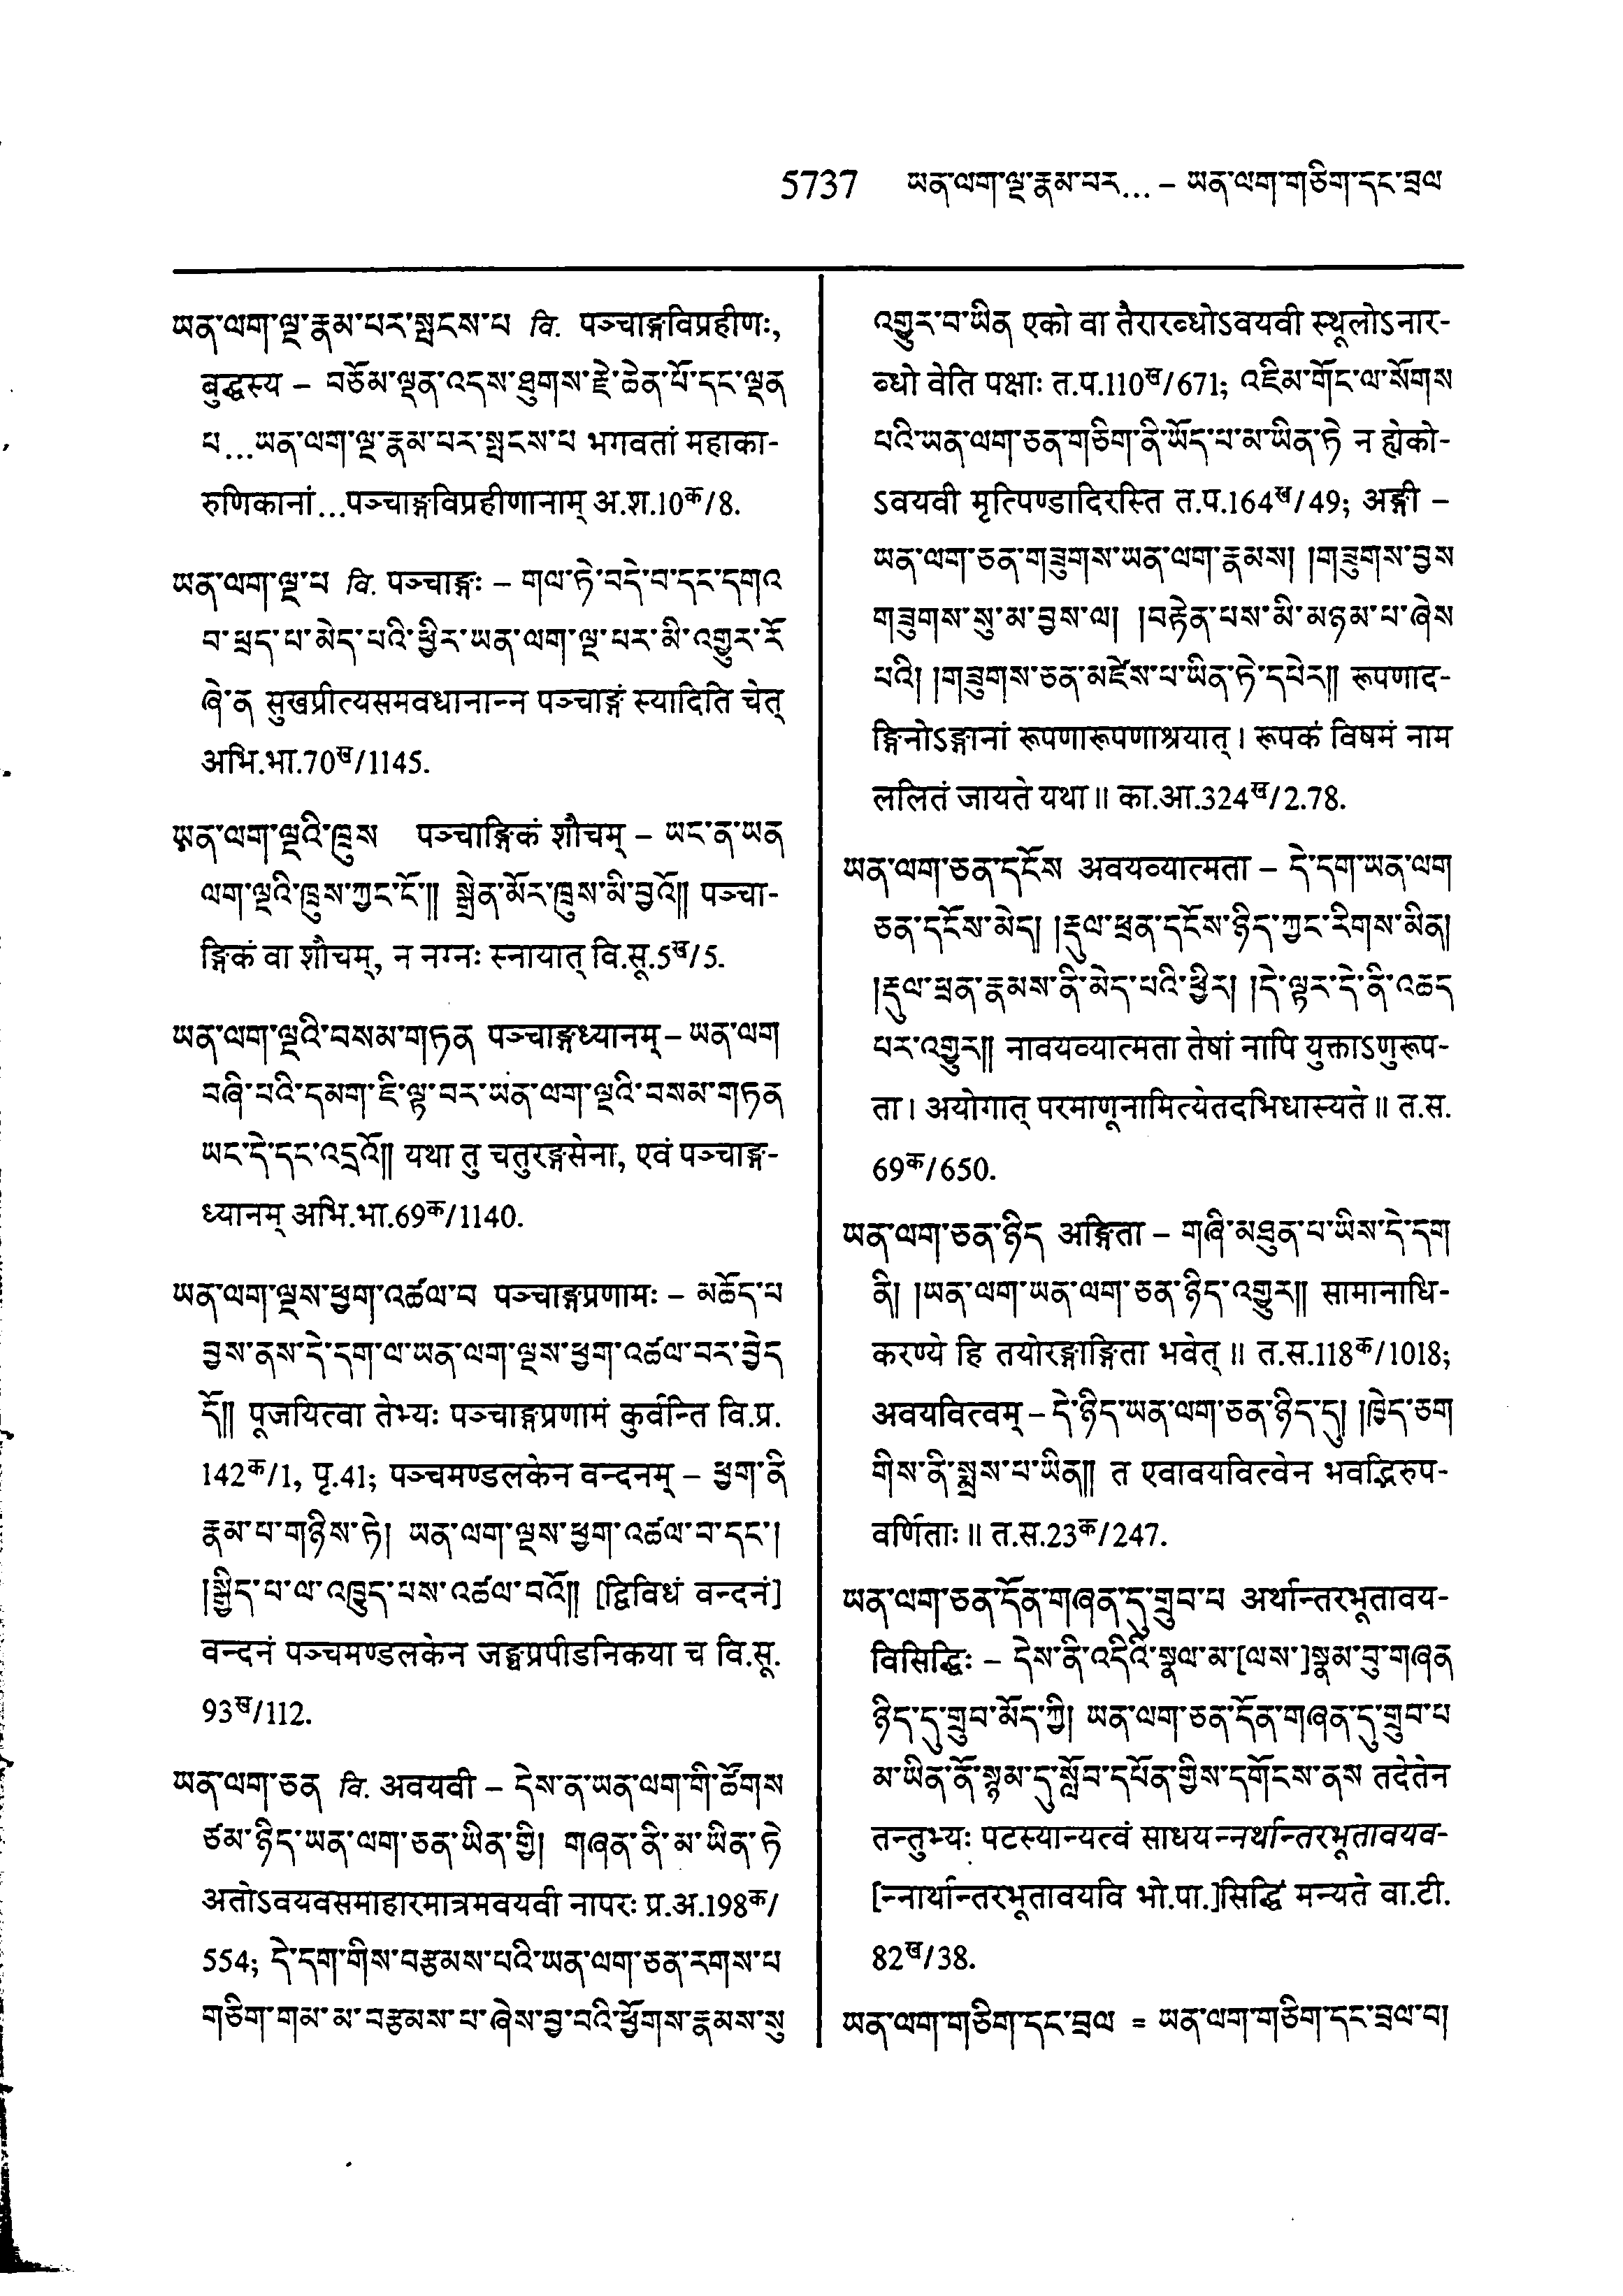 5737 ཡན་ལག་ལྔ་རྣམ་པར... – ཡན་ལག་གཅིག་དང་བྲལ
ཡན་ལག་ལྔ་རྣམ་པར་སྤངས་པ वि. पञ्चाङ्गविप्रहीणः,
बुद्धस्य – བཅོམ་ལྡན་འདས་ཐུགས་རྗེ་ཆེན་པོ་དང་ལྡན
པ...ཡན་ལག་ལྔ་རྣམ་པར་སྤངས་པ भगवतां महाका-
रुणिकानां...पञ्चाङ्गविप्रहीणानाम् अ.श.10क/8.
ཡན་ལག་ལྔ་པ वि. पञ्चाङ्गः – གལ་ཏེ་བདེ་བ་དང་དགའ
བ་ཕྲད་པ་མེད་པའི་ཕྱིར་ཡན་ལག་ལྔ་པར་མི་འགྱུར་རོ
ཞེ་ན सुखप्रीत्यसमवधानान्न पञ्चाङ्गं स्यादिति चेत्
अभि.भा.70ख/1145.
ཡན་ལག་ལྔའི་ཁྲུས पञ्चाङ्गिकं शौचम् – ཡང་ན་ཡན
ལག་ལྔའི་ཁྲུས་ཀྱང་ངོ་༎ སྒྲེན་མོར་ཁྲུས་མི་བྱའོ༎ पञ्चा-
ङ्गिकं वा शौचम्, न नग्नः स्नायात् वि.सू.5ख/5.
ཡན་ལག་ལྔའི་བསམ་གཏན पञ्चाङ्गध्यानम् – ཡན་ལག
བཞི་པའི་དམག་ཇི་ལྟ་བར་ཡན་ལག་ལྔའི་བསམ་གཏན
ཡང་དེ་དང་འདྲའོ༎ यथा तु चतुरङ्गसेना, एवं पञ्चाङ्ग-
ध्यानम् अभि.भा.69क/1140.
ཡན་ལག་ལྔས་ཕྱག་འཚལ་བ पञ्चाङ्गप्रणामः – མཆོད་པ
བྱས་ནས་དེ་དག་ལ་ཡན་ལག་ལྔས་ཕྱག་འཚལ་བར་བྱེད
དོ༎ पूजयित्वा तेभ्यः पञ्चाङ्गप्रणामं कुर्वन्ति वि.प्र.
142क/1, पृ.41; पञ्चमण्डलकेन वन्दनम् – ཕྱག་ནི
རྣམ་པ་གཉིས་ཏེ། ཡན་ལག་ལྔས་ཕྱག་འཚལ་བ་དང་།
།སྒྱིད་པ་ལ་འཁྱུད་པས་འཚལ་བའོ༎ [द्विविधं वन्दनं]
वन्दनं पञ्चमण्डलकेन जङ्घप्रपीडनिकया च वि.सू.
93ख/112.
ཡན་ལག་ཅན वि. अवयवी – དེས་ན་ཡན་ལག་གི་ཚོགས
ཙམ་ཉིད་ཡན་ལག་ཅན་ཡིན་གྱི། གཞན་ནི་མ་ཡིན་ཏེ
अतोऽवयवसमाहारमात्रमवयवी नापरः प्र.अ.198क/
554; དེ་དག་གིས་བརྩམས་པའི་ཡན་ལག་ཅན་རགས་པ
གཅིག་གམ་མ་བརྩམས་པ་ཞེས་བྱ་བའི་ཕྱོགས་རྣམས་སུ
འགྱུར་བ་ཡིན एको वा तैरारब्धोऽवयवी स्थूलोऽनार-
ब्धो वेति पक्षाः त.प.110ख/671; འཇིམ་གོང་ལ་སོགས
པའི་ཡན་ལག་ཅན་གཅིག་ནི་ཡོད་པ་མ་ཡིན་ཏེ न ह्येको-
ऽवयवी मृत्पिण्डादिरस्ति त.प.164ख/49; अङ्गी –
ཡན་ལག་ཅན་གཟུགས་ཡན་ལག་རྣམས། །གཟུགས་བྱས
གཟུགས་སུ་མ་བྱས་ལ། །བརྟེན་པས་མི་མཉམ་པ་ཞེས
པའི། །གཟུགས་ཅན་མཛེས་པ་ཡིན་ཏེ་དཔེར༎ रूपणाद-
ङ्गिनोऽङ्गानां रूपणारूपणाश्रयात् । रूपकं विषमं नाम
ललितं जायते यथा ॥ का.आ.324ख/2.78.
ཡན་ལག་ཅན་དངོས अवयव्यात्मता – དེ་དག་ཡན་ལག
ཅན་དངོས་མེད། །རྡུལ་ཕྲན་དངོས་ཉིད་ཀྱང་རིགས་མིན།
།རྡུལ་ཕྲན་རྣམས་ནི་མེད་པའི་ཕྱིར། །དེ་ལྟར་དེ་ནི་འཆད
པར་འགྱུར༎ नावयव्यात्मता तेषां नापि युक्ताऽणुरूप-
ता । अयोगात् परमाणूनामित्येतदभिधास्यते ॥ त.स.
69क/650.
ཡན་ལག་ཅན་ཉིད अङ्गिता – གཞི་མཐུན་པ་ཡིས་དེ་དག
ནི། །ཡན་ལག་ཡན་ལག་ཅན་ཉིད་འགྱུར༎ सामानाधि-
करण्ये हि तयोरङ्गाङ्गिता भवेत् ॥ त.स.118क/1018;
अवयवित्वम् – དེ་ཉིད་ཡན་ལག་ཅན་ཉིད་དུ། །ཁྱེད་ཅག
གིས་ནི་སྨྲས་པ་ཡིན༎ त एवावयवित्वेन भवद्भिरुप-
वर्णिताः ॥ त.स.23क/247.
ཡན་ལག་ཅན་དོན་གཞན་དུ་གྲུབ་པ अर्थान्तरभूतावय-
विसिद्धिः – དེས་ནི་འདིའི་སྣལ་མ་[ལས་]སྣམ་བུ་གཞན
ཉིད་དུ་གྲུབ་མོད་ཀྱི། ཡན་ལག་ཅན་དོན་གཞན་དུ་གྲུབ་པ
མ་ཡིན་ནོ་སྙམ་དུ་སློབ་དཔོན་གྱིས་དགོངས་ནས तदेतेन
तन्तुभ्यः पटस्यान्यत्वं साधयन्नर्थान्तरभूतावयव-
[न्नार्थान्तरभूतावयवि भो.पा.]सिद्धिं मन्यते वा.टी.
82ख/38.
ཡན་ལག་གཅིག་དང་བྲལ = ཡན་ལག་གཅིག་དང་བྲལ་བ།